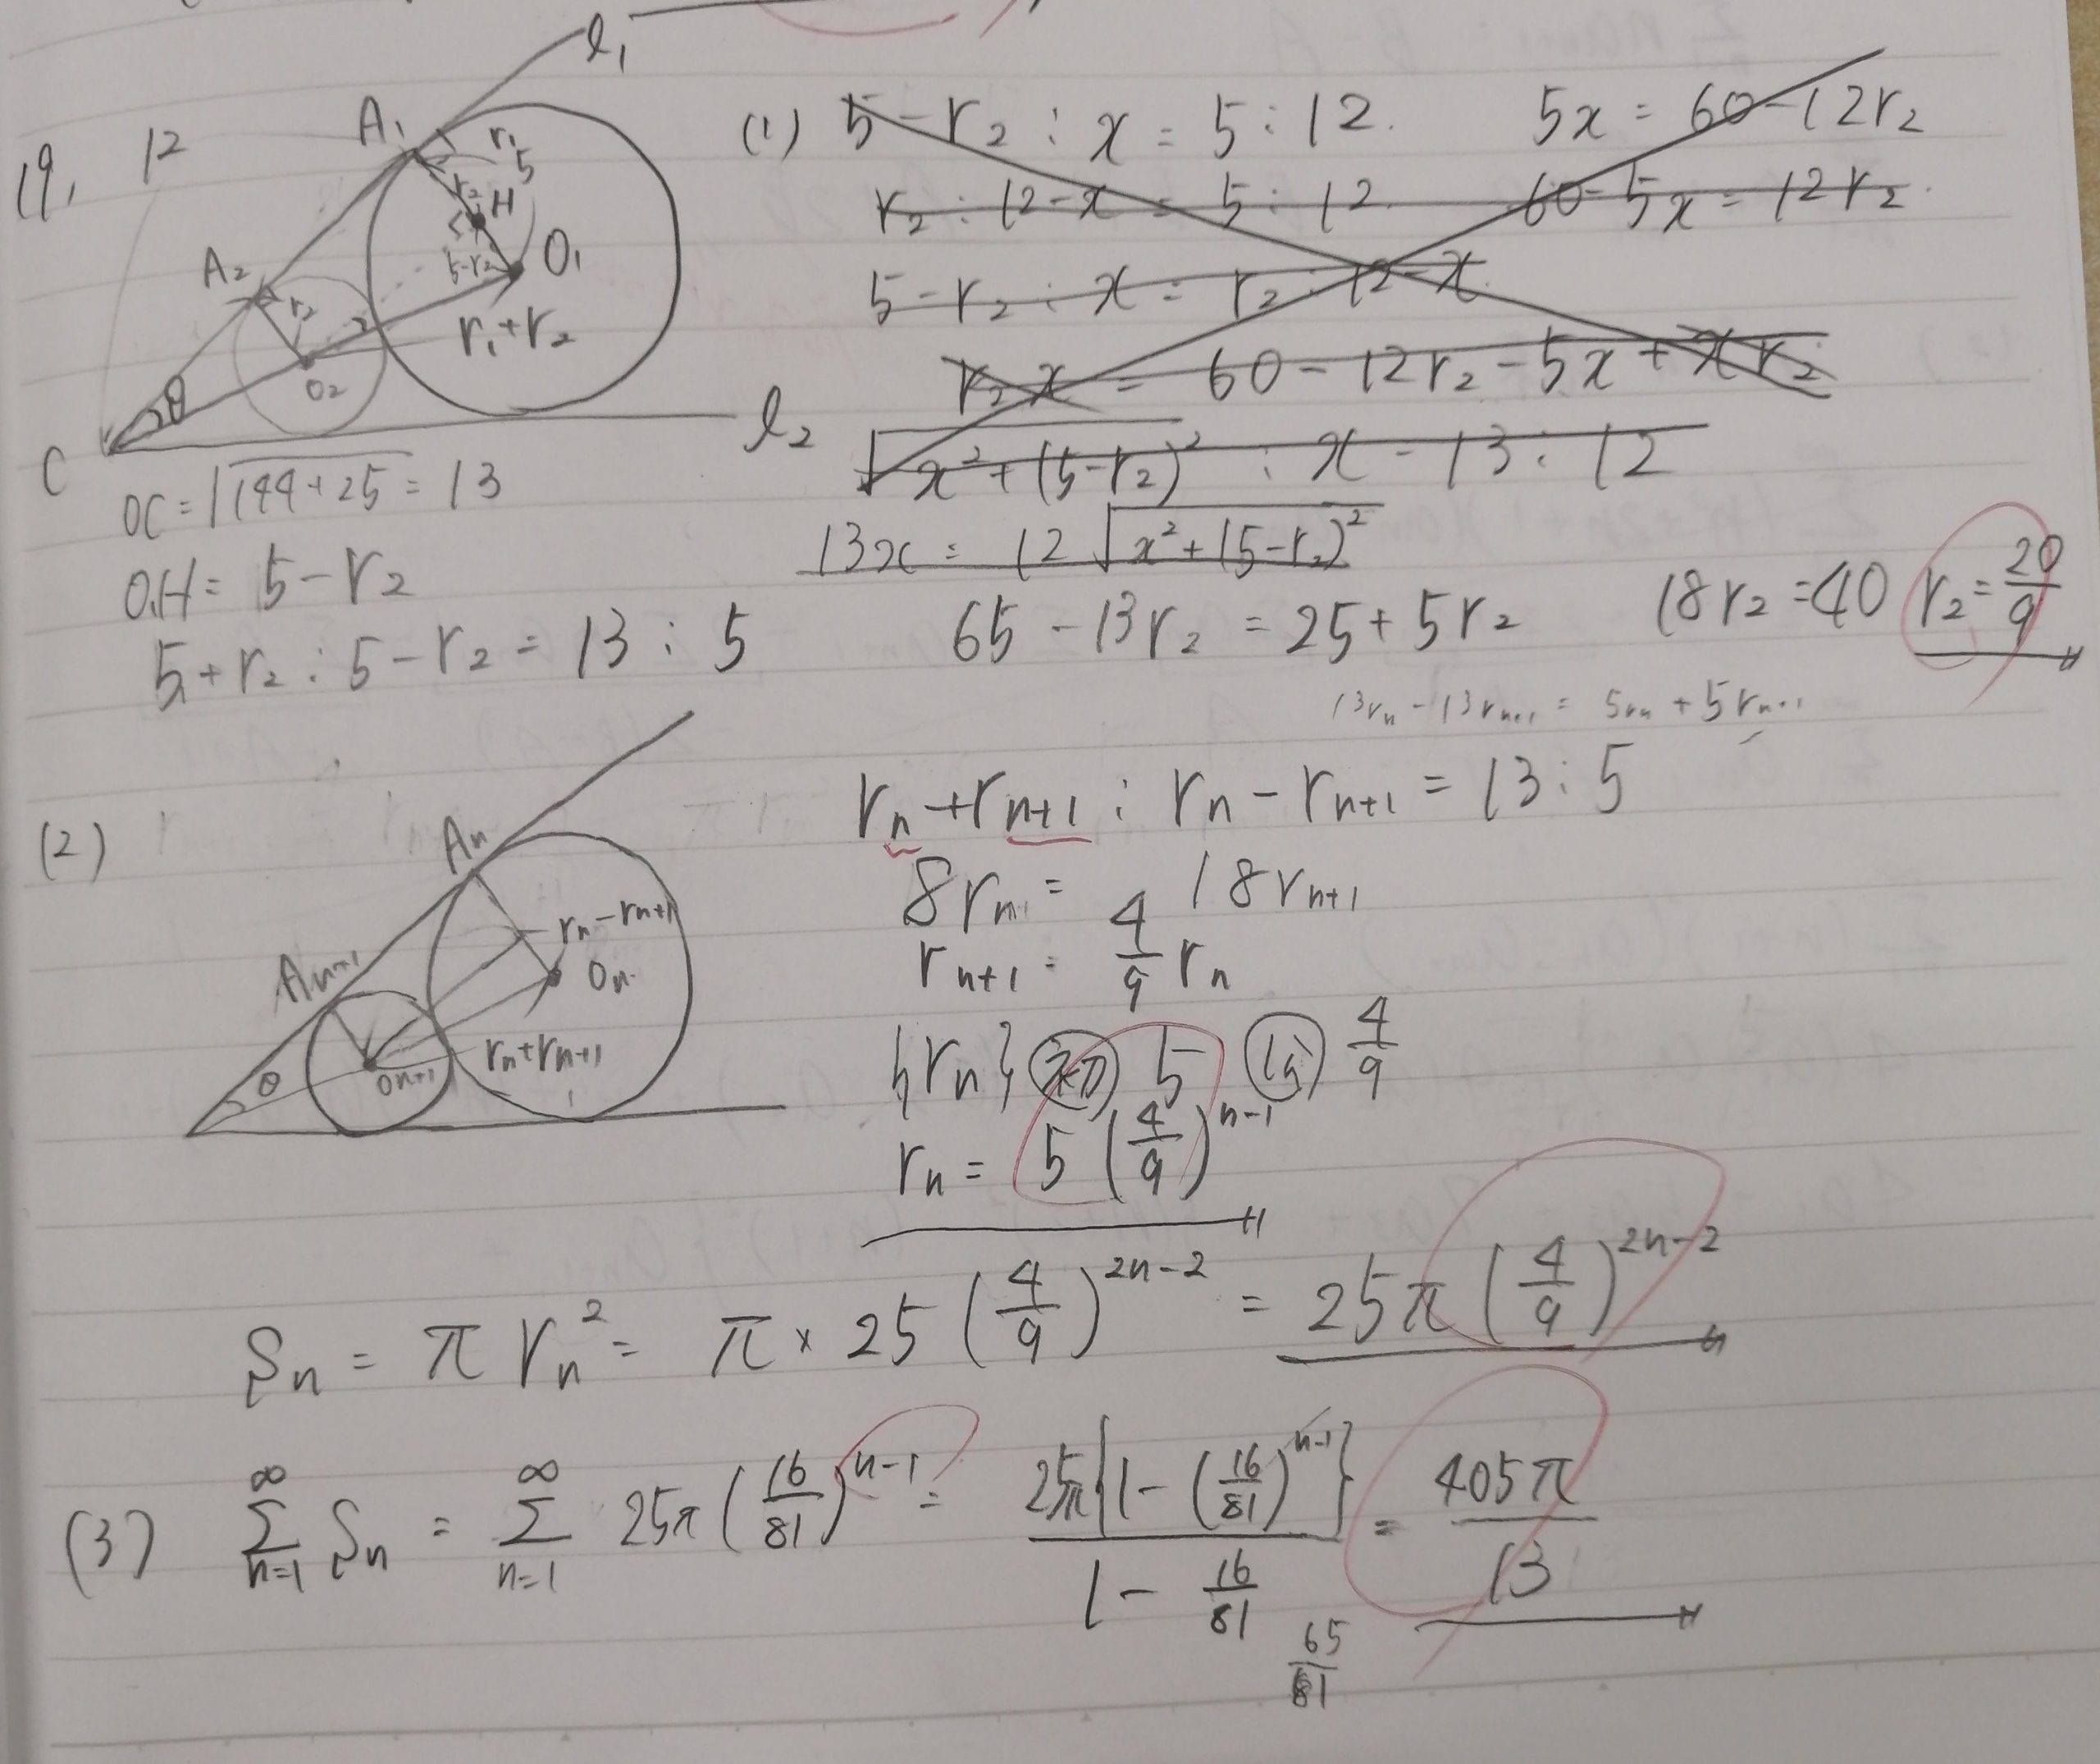 19. 12 A₁ l₁
r₁ 5
r₂ H
A₂ r₂ 5-r₂ O₁
r₁+r₂
θ O₂
C l₂
OC = √(144+25) = 13
O₁H = 5-r₂
5+r₂ : 5-r₂ = 13 : 5
(1) 5-r₂ : x = 5 : 12. 5x = 60-12r₂
r₂ : 12-x = 5 : 12. 60-5x = 12r₂.
5-r₂ : x = r₂ : 12-x
r₂x = 60-12r₂-5x+xr₂
√(x²+(5-r₂)²) : x = 13 : 12
13x = 12√(x²+(5-r₂)²)
65-13r₂ = 25+5r₂ 18r₂=40 r₂=20/9
13rₙ-13rₙ₊₁ = 5rₙ+5rₙ₊₁
(2) Aₙ
rₙ-rₙ₊₁
Aₙ₊₁ Oₙ
θ Oₙ₊₁ rₙ+rₙ₊₁
rₙ+rₙ₊₁ : rₙ-rₙ₊₁ = 13 : 5
8rₙ = 18rₙ₊₁
rₙ₊₁ = 4/9 rₙ
{rₙ} 初 5 比 4/9
rₙ = 5(4/9)ⁿ⁻¹
Sₙ = πrₙ² = π×25(4/9)²ⁿ⁻² = 25π(4/9)²ⁿ⁻²
(3) ∑ₙ₌₁^∞ Sₙ = ∑ₙ₌₁^∞ 25π(16/81)ⁿ⁻¹ = 25π{1-(16/81)ⁿ⁻¹}/(1-16/81) = 405π/13
65/81